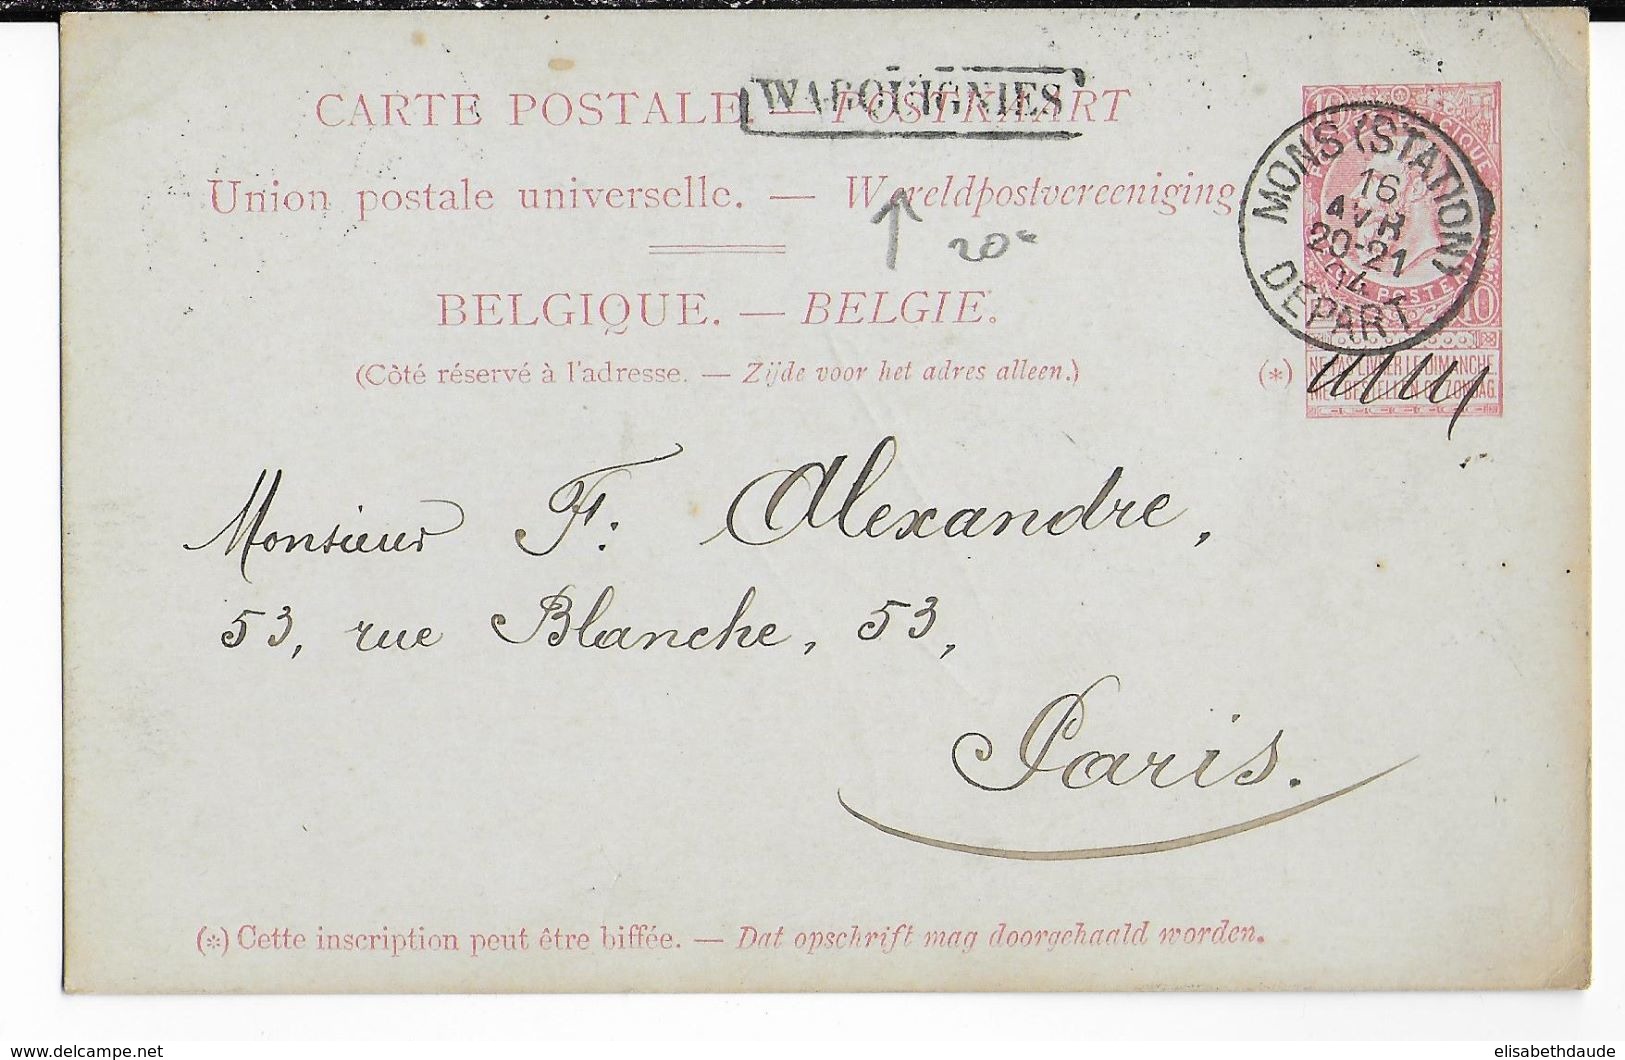 WARQUIGNIES
CARTE POSTALE — POSTKAART
Union postale universelle. — Wereldpostvereeniging
20c
BELGIQUE. — BELGIE.
(Côté réservé à l'adresse. — Zijde voor het adres alleen.)
MONS (STATION)
16
AVR
20-21
DEPART
10
(*) NE PAS LIVRER LE DIMANCHE
NIET BESTELLEN OP ZONDAG.
Monsieur F. Alexandre,
53, rue Blanche, 53,
Paris.
(*) Cette inscription peut être biffée. — Dat opschrift mag doorgehaald worden.
www.delcampe.net
elisabethdaude